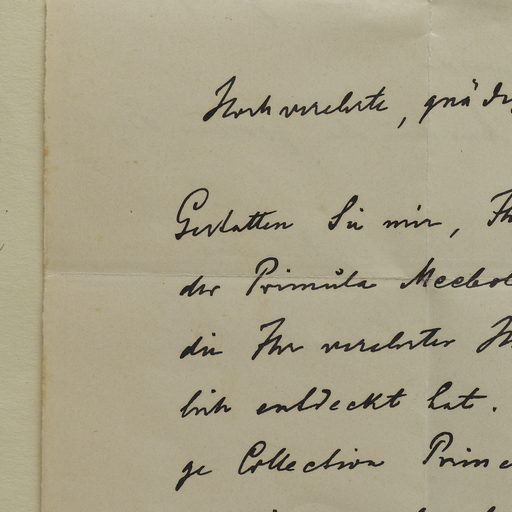 Hochverehrte, gnädi
Gestatten Sie mir, Ih
der Primula Meebol
die Ihr verehrter H
lich entdeckt hat.
ge Collection Prim